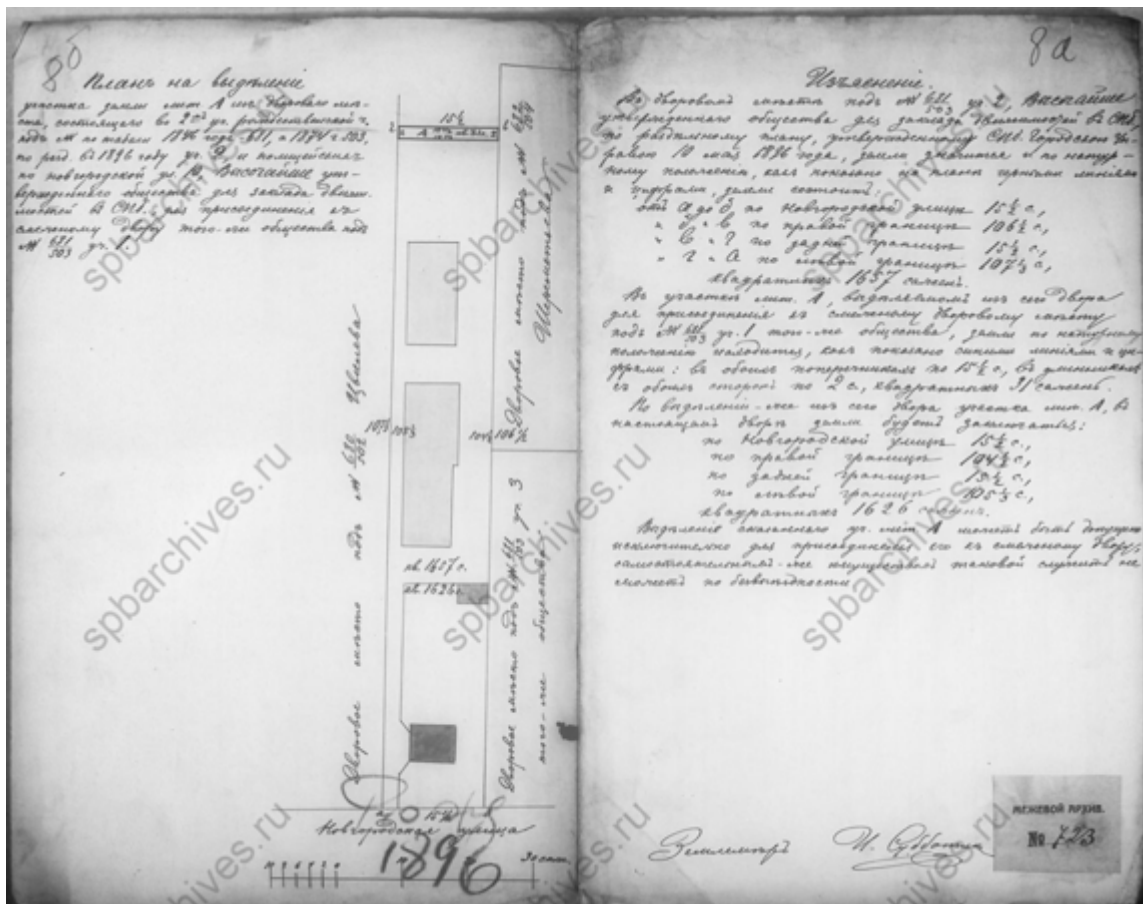 8б
Планъ на выдѣленіе
участка земли лит. А изъ двороваго мѣ-
ста, состоящаго во 2ой уч. рождественской ч.
подъ № по табели 1896 года 621, а 1874 г. 503,
по разд. въ 1896 году уч. 2 и полицейскимъ
по новгородской ул. , Высочайше ут-
вержденнаго общества для заклада движи-
мостей въ СПб., для присоединенія къ
смежному двору того-же общества подъ
№ 621/503 уч. 1.
15½
2 А 2
Дворовое мѣсто подъ № 622/504
Шереметьева
Дворовое мѣсто подъ № 620/502 Цвылева
107⅓ 105⅓
104½ 106½
кв. 1657 с.
кв. 1626 с.
Дворовое мѣсто подъ № 621/503 уч. 3
того-же общества
15½
Новгородская улица
1896
30 саж.
8а
Изъясненіе.
Въ дворовомъ мѣстѣ подъ № 621/503 уч. 2, Высочайше
утвержденнаго общества для заклада движимостей въ СПб.,
по раздѣльному плану, утвержденному СПб. Городскою Уп-
равою 10 мая 1896 года, земли значится и по натур-
ному положенію, какъ показано на планѣ черными линіями
и цифрами, земли состоитъ:
отъ а до б по Новгородской улицѣ 15½ с.,
" б " в по правой границѣ 106½ с.,
" в " г по задней границѣ 15½ с.,
" г " а по лѣвой границѣ 107⅓ с.,
квадратныхъ 1657 сажен.
Въ участкѣ лит. А, выдѣляемомъ изъ сего двора
для присоединенія къ смежному дворовому мѣсту
подъ № 621/503 уч. 1 того-же общества, земли по натурному
положенію находится, какъ показано синими линіями и ци-
фрами: въ обоихъ поперечникахъ по 15½ с., въ длинникахъ
съ обоихъ сторонъ по 2 с., квадратныхъ 31 сажень.
По выдѣленіи-же изъ сего двора участка лит. А, въ
настоящемъ дворѣ земли будетъ заключаться:
по Новгородской улицѣ 15½ с.,
по правой границѣ 104½ с.,
по задней границѣ 15½ с.,
по лѣвой границѣ 105⅓ с.,
квадратныхъ 1626 сажен.
Выдѣленіе означеннаго уч. лит. А можетъ быть допущено
исключительно для присоединенія его къ смежному двору,
самостоятельнымъ-же имуществомъ таковой служить не
можетъ по безвыходности.
Землемѣръ И. Субботин
МЕЖЕВОЙ АРХИВ.
№ 723
spbarchives.ru
spbarchives.ru
spbarchives.ru
spbarchives.ru
spbarchives.ru
spbarchives.ru
spbarchives.ru
spbarchives.ru
spbarchives.ru